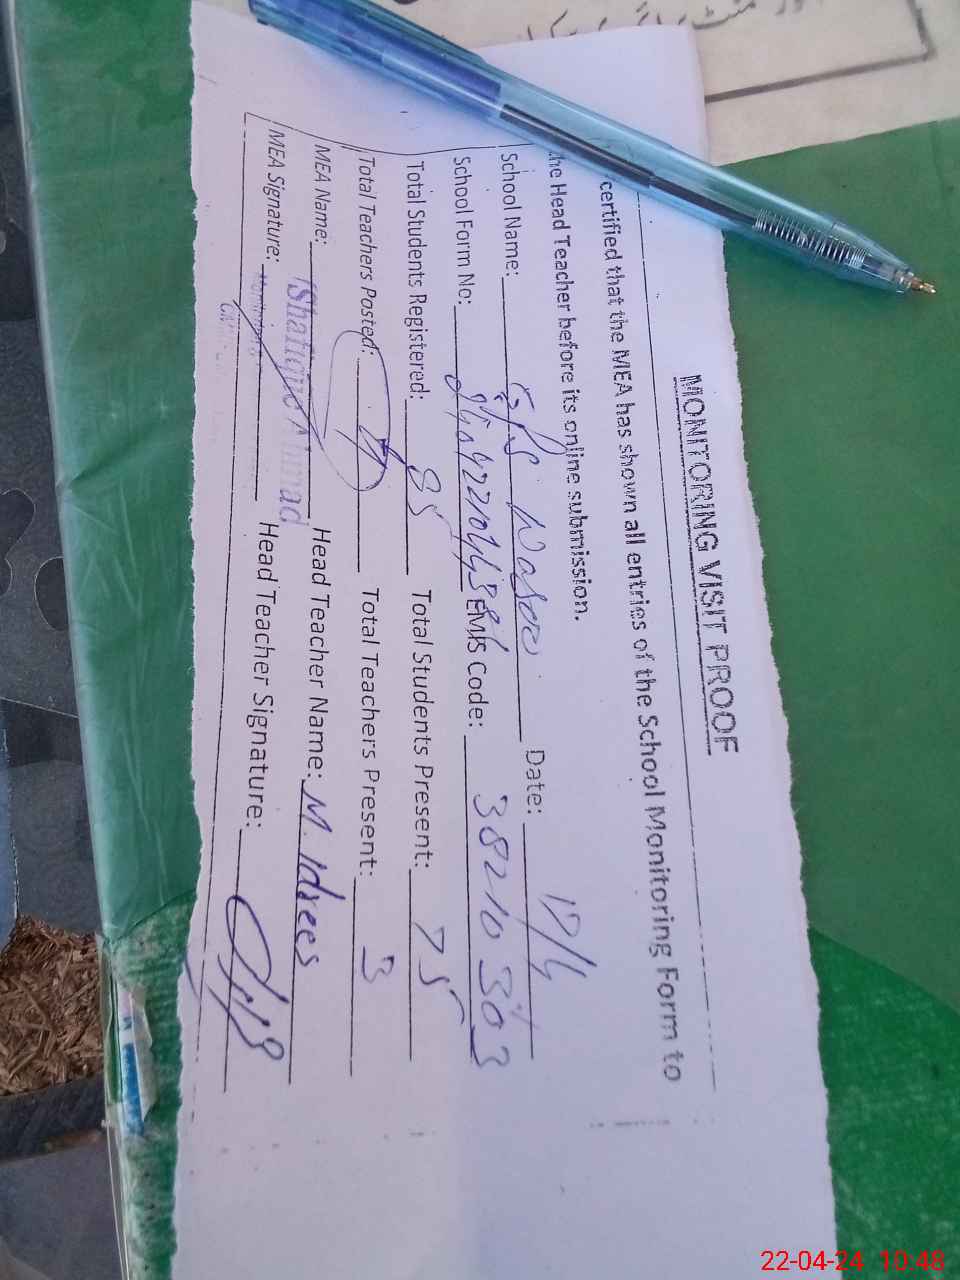 MONITORING VISIT PROOF
certified that the MEA has shown all entries of the School Monitoring Form to
the Head Teacher before its online submission.
School Name: GPS Wasoo Date: 17/4
School Form No: EMIS Code: 38210303
Total Students Registered: 85 Total Students Present: 75
Total Teachers Posted: 4 Total Teachers Present: 3
MEA Name: Shafique Ahmad Head Teacher Name: M. Idrees
MEA Signature: Head Teacher Signature:
22-04-24 10:48